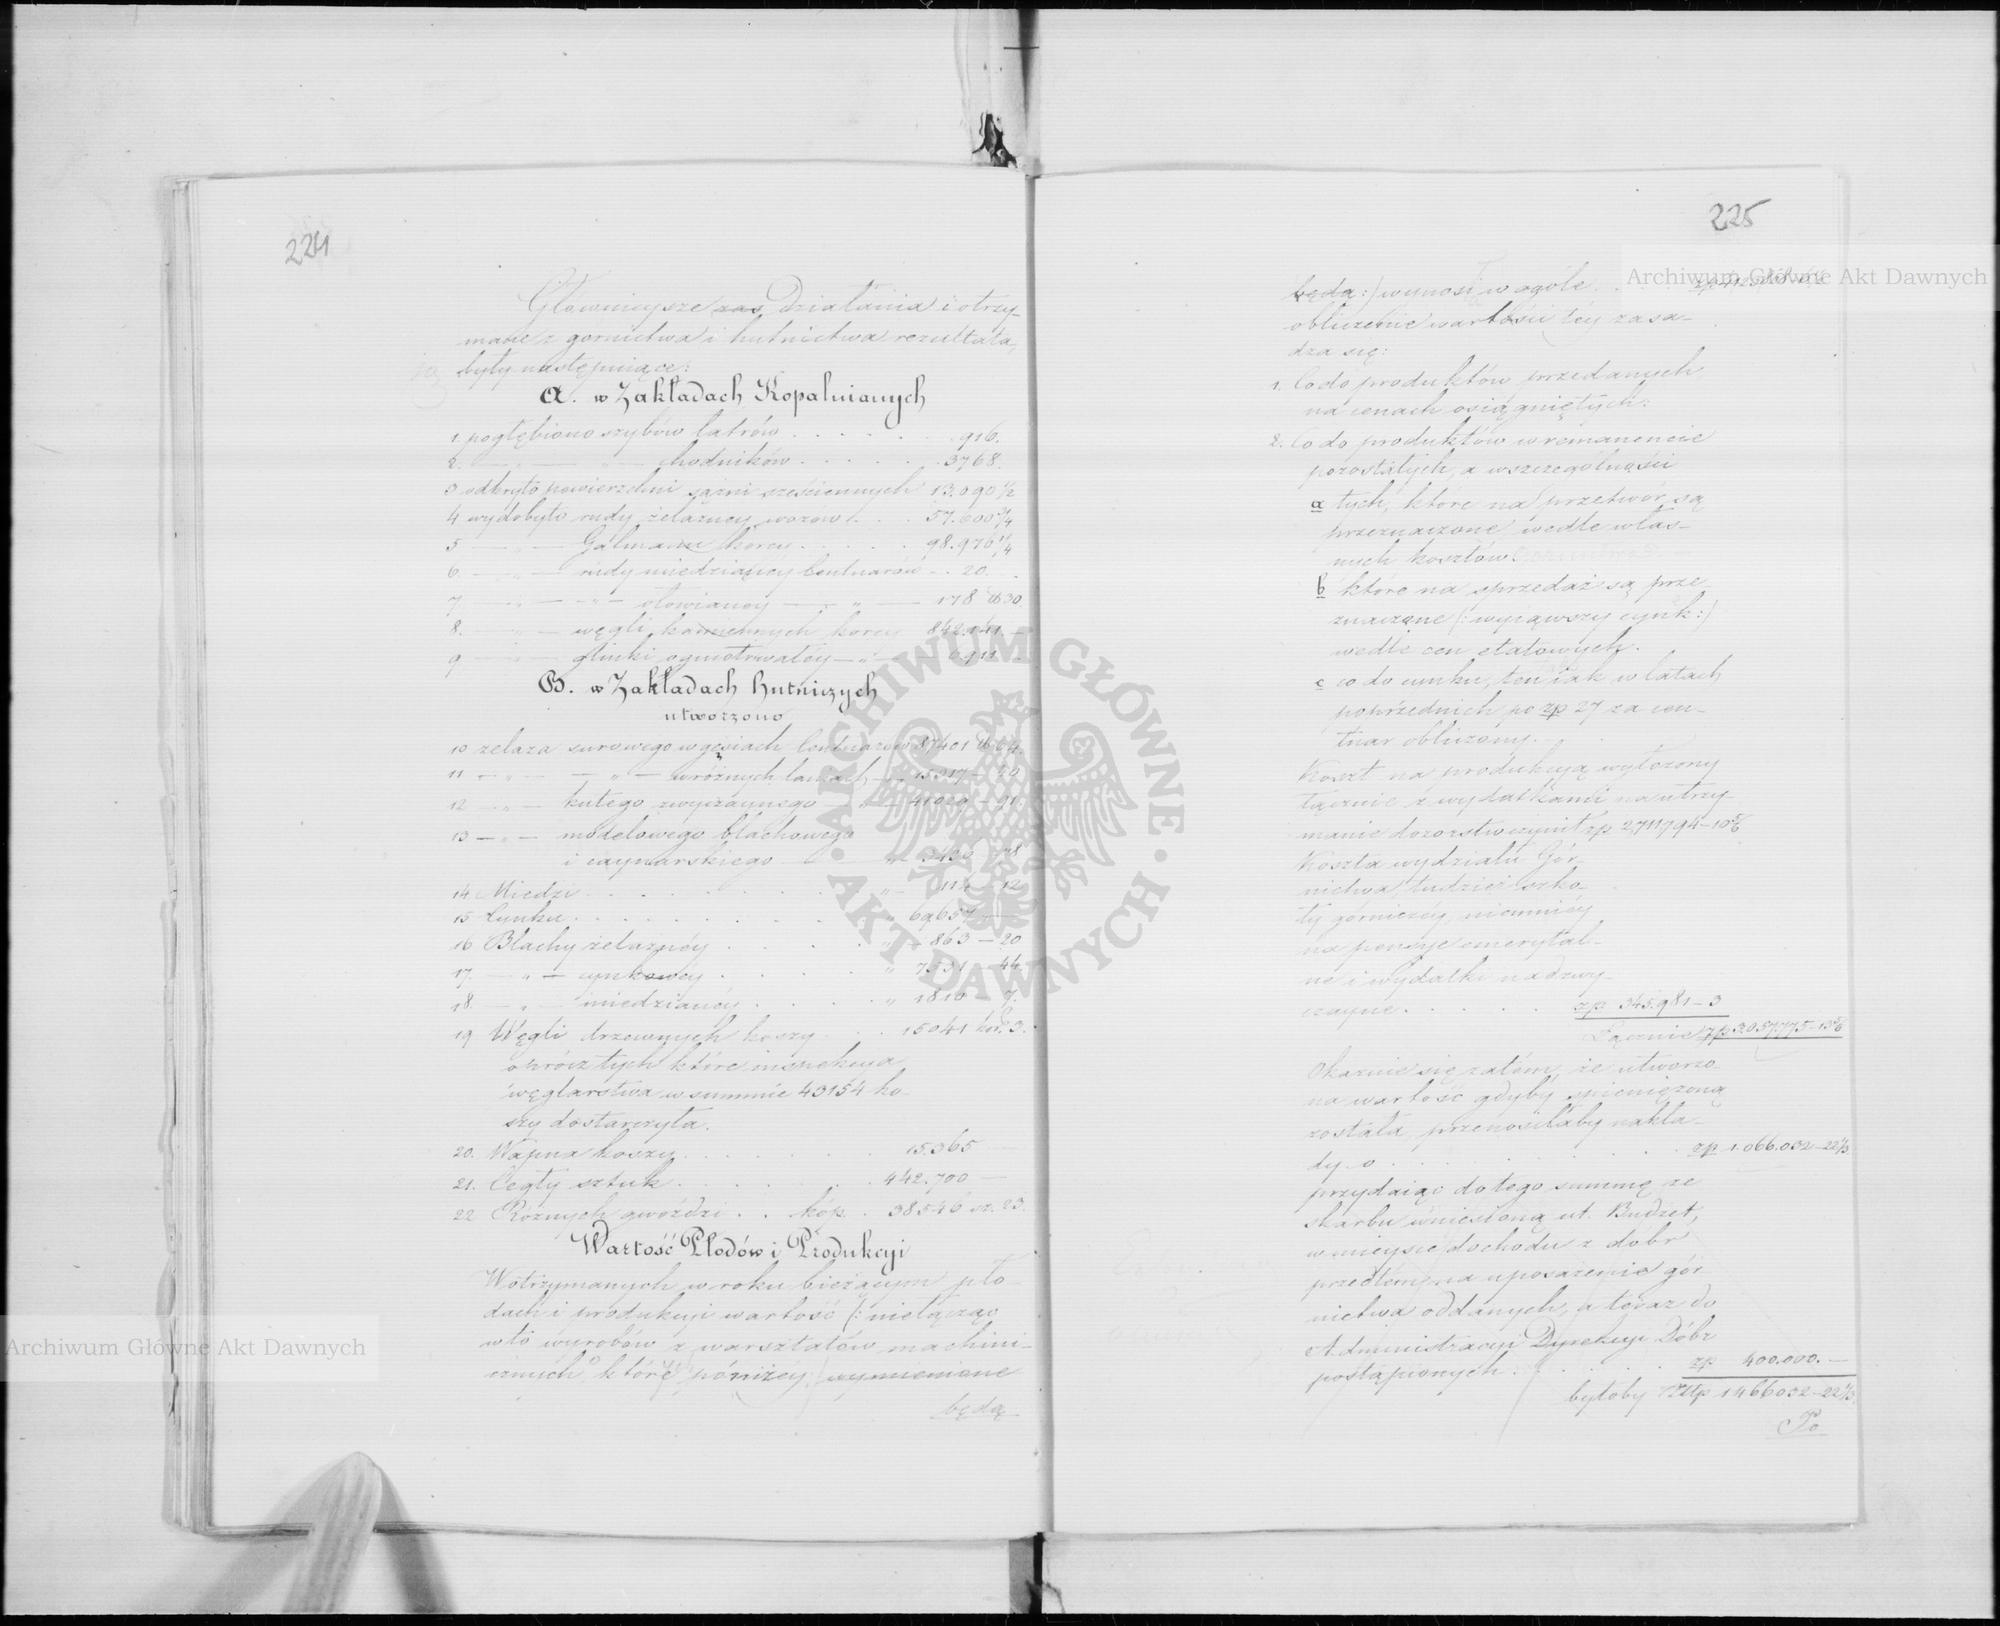 224
Główniejsze zas Działania i otrzy-
mane z gornictwa i hutnictwa rezultata,
były następuiące:
a. w Zakładach Kopalnianych
1. pogłębiono szybów latrów . . . . . 916.
2. — „ — „ — chodników . . . . . 3768.
3 odkryto powierzchni sążni sześciennych 13.090 1/2
4 wydobyto rudy żelazney wozów . . . 57.600 3/4
5 — „ — Galmanu korcy . . . . . 98.976 1/4
6. — „ — rudy miedzianey Centnarów — . 20.
7. — „ — „ — ołowianey — „ — 178 ℔ 30
8. — „ — węgli kamiennych korcy 842.141. —
9 — „ — glinki ogniotrwałéy — „ — 6.911 —
B. w Zakładach hutniczych
utworzono
10 żelaza surowego w gęsiach Centnarów 87401 ℔ 64.
11 — „ — — „ — w różnych lanzach — „ 15917 — 20
12 — „ — kutego zwyczaynego — „ — 41029 — 91.
13 — „ — modelowego blachowego
i caynarskiego — „ — 3430 — 78
14 Miedzi . . . . . . . „ — 114 — 12
15 Cynku . . . . . . . „ 69657 —
16 Blachy żelaznéy . . . . „ — 863 — 20
17. — „ — cynkowéy . . . . „ 7531 — 44
18. — „ — miedzianéy . . . . „ 1810 7.
19 Węgli drzewnych koszy . . 15041 3.
oprócz tych które inspekcya
węglarstwa w summie 43154 ko-
szy dostarczyła.
20. Wapna koszy . . . . . . 15.365 —
21. Cegły sztuk . . . . . . 442.700 —
22 Różnych gwoździ . . kóp . 38546 sz. 23.
Wartość Płodów i Produkcyi
W otrzymanych w roku bieżącym pło-
dach i produkcyi wartość (: nie łącząc
w to wyrobów z warsztatów machini-
cznych które póniżey wymienione
będą
225
będą :) wynosi w ogóle . .
obliczenie wartości téy zasa-
dza się:
1. Co do produktów przedanych
na cenach osiągniętych:
2. Co do produktów w remanencie
pozostałych, a wszczególności
a tych, które na przetwór są
przeznaczone wedle włas-
nych kosztów.
b które na sprzedaż są prze
znaczone (: wyiąwszy cynk :)
wedle cen etatowych.
c co do cynku, ten iak w latach
poprzednich po zp 27 za cen-
tnar obliczony.
Koszt na produkcyą wyłożony
łącznie z wydatkami na utrzy-
manie dozorstw czynił zp 2711794 — 10 5/6
Koszta wydziału Gór-
nictwa tudzież szko-
ły górniczéy, niemniéy
na pensye emerytal-
ne i wydatki nadzwy-
czayne . . . . . zp 345.981 — 3
Łącznie zp 3.057.775 — 13 5/6
Okazuie się zatém, że utworzo-
na wartość gdyby spieniężoną
została, przenosiłaby nakła-
dy o . . . . . . . zp 1.066.032 — 22 1/3
przydaiąc do tego summę ze
skarbu wniesioną ut. Budżet,
w mieysce dochodu z dobr
przedtém na uposażenie gór
nictwa oddanych, a teraz do
Administracyi Dyrekcyi Dóbr
postąpionych . . . . . zp 400.000. —
byłoby Złtp 1466032 — 22 1/3.
Po
Archiwum Główne Akt Dawnych
Archiwum Główne Akt Dawnych
ARCHIWUM GŁÓWNE · AKT DAWNYCH ·